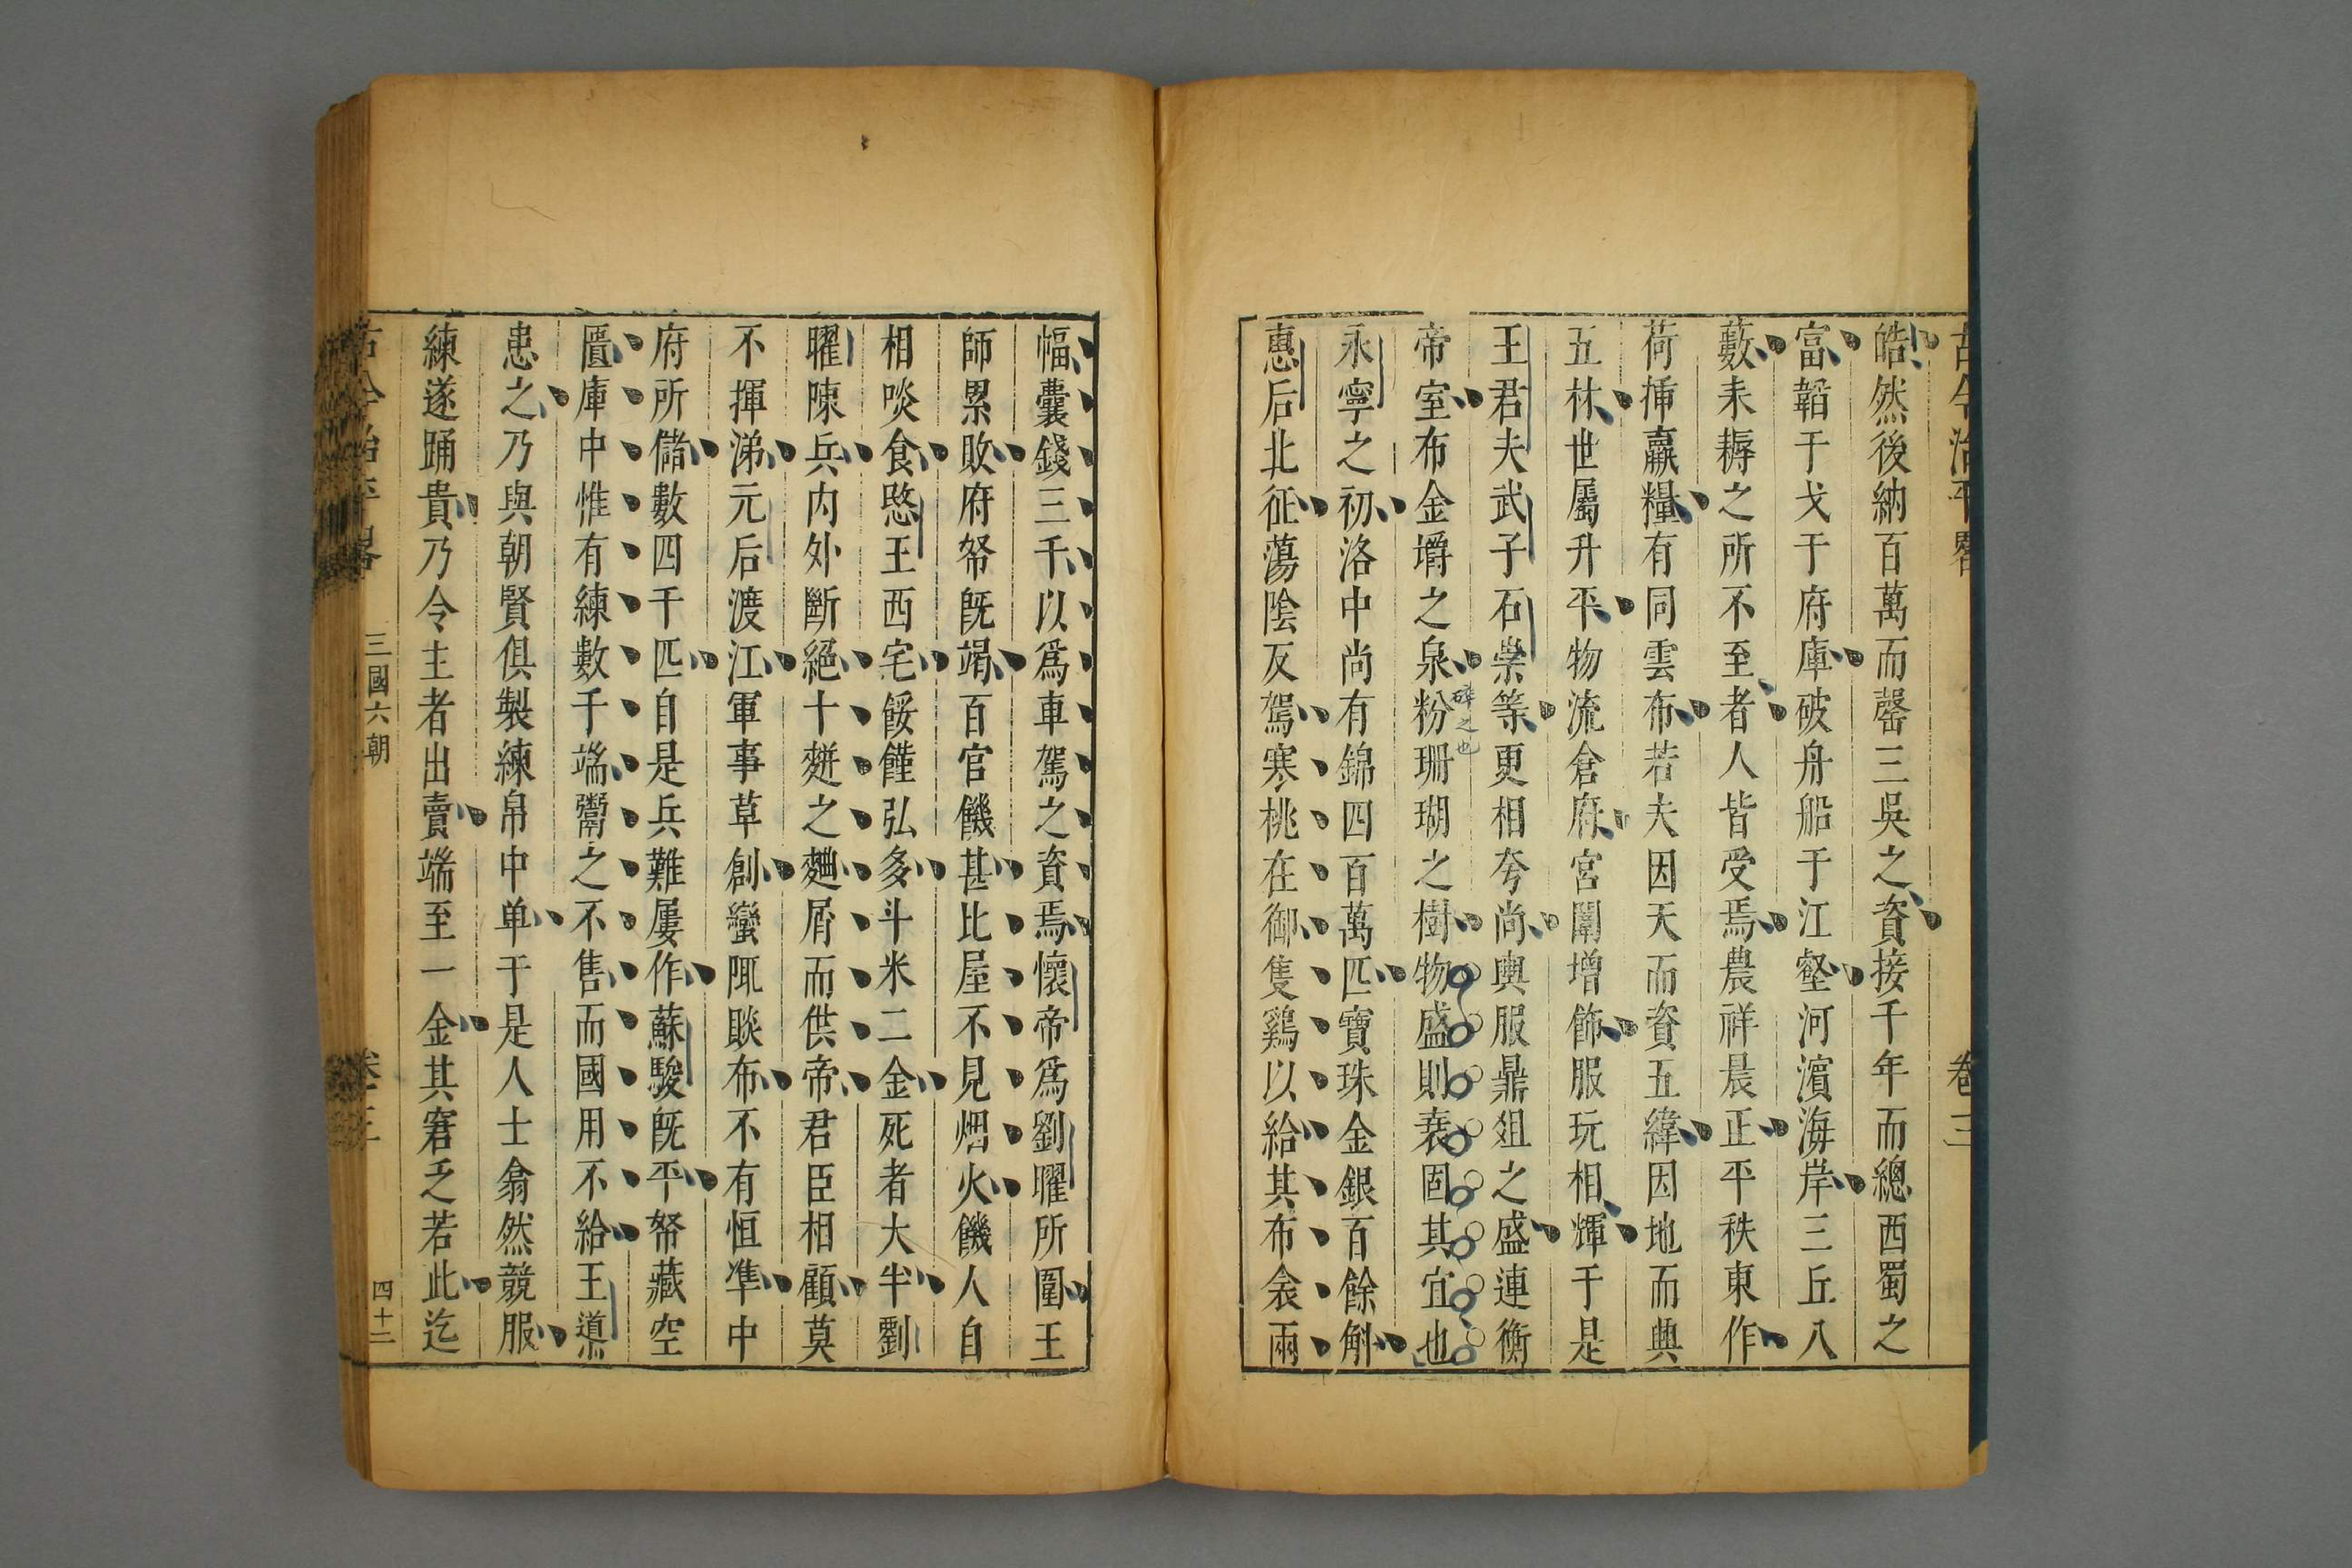 古今治平畧　卷三
皓然後納百萬而罄三吳之資接千年而總西蜀之
富韜干戈于府庫破舟船于江壑河濱海岸三丘八
藪耒耨之所不至者人皆受焉農祥晨正平秩東作
荷揷贏糧有同雲布若夫因天而資五緯因地而興
五材世屬升平物流倉府宮闈增飾服玩相輝于是
王君夫武子石崇等更相夸尚輿服鼎俎之盛連衡
帝室布金埓之泉粉珊瑚之樹物盛則衰固其宜也
碎之也
永寧之初洛中尚有錦四百萬匹寶珠金銀百餘斛
惠后北征蕩陰反駕寒桃在御隻鷄以給其布衾兩
幅囊錢三千以爲車駕之資焉懷帝爲劉曜所圍王
師累敗府帑旣竭百官饑甚比屋不見烟火饑人自
相啖食愍王西宅餒饉弘多斗米二金死者大半劉
曜陳兵内外斷絕十䴵之麯屑而供帝君臣相顧莫
不揮涕元后渡江軍事草創蠻陬賧布不有恒準中
府所儲數四千匹自是兵難屢作蘇駿旣平帑藏空
匱庫中惟有練數千端鬻之不售而國用不給王導
患之乃與朝賢俱製練帛中单于是人士翕然競服
練遂踊貴乃令主者出賣端至一金其窘乏若此迄
古今治平畧　三國六朝　卷三　四十二